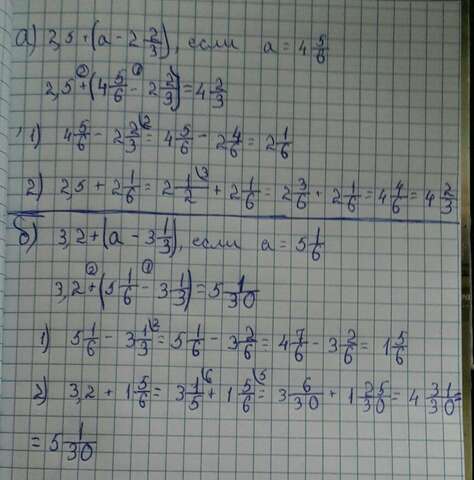 а) 2,5 + (а - 2 2/3), если а = 4 5/6
2,5 +② (4 5/6 -① 2 2/3) = 4 2/3
1) 4 5/6 - 2 2/3\2 = 4 5/6 - 2 4/6 = 2 1/6
2) 2,5 + 2 1/6 = 2 1/2\3 + 2 1/6 = 2 3/6 + 2 1/6 = 4 4/6 = 4 2/3
б) 3,2 + (а - 3 1/3), если а = 5 1/6
3,2 +② (5 1/6 -① 3 1/3) = 5 1/30
1) 5 1/6 - 3 1/3\2 = 5 1/6 - 3 2/6 = 4 7/6 - 3 2/6 = 1 5/6
2) 3,2 + 1 5/6 = 3 1/5\6 + 1 5/6\5 = 3 6/30 + 1 25/30 = 4 31/30 =
= 5 1/30